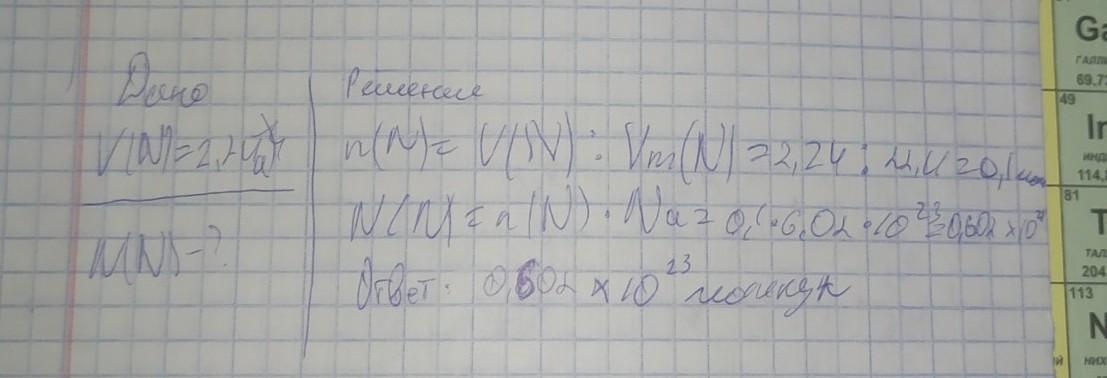 Дано
V(N)=2,24л
N(N)-?
Решение
n(N)= V(N) : Vm(N)=2,24 : 22,4=0,1моль
N(N)=n(N)·Na=0,1·6,02·10²³=0,602×10²³
Ответ: 0,602×10²³ молекул
Ga
ГАЛЛИ
69,72
49
In
ИНД
114,8
81
T
ТАЛ
204
113
N
НИХ